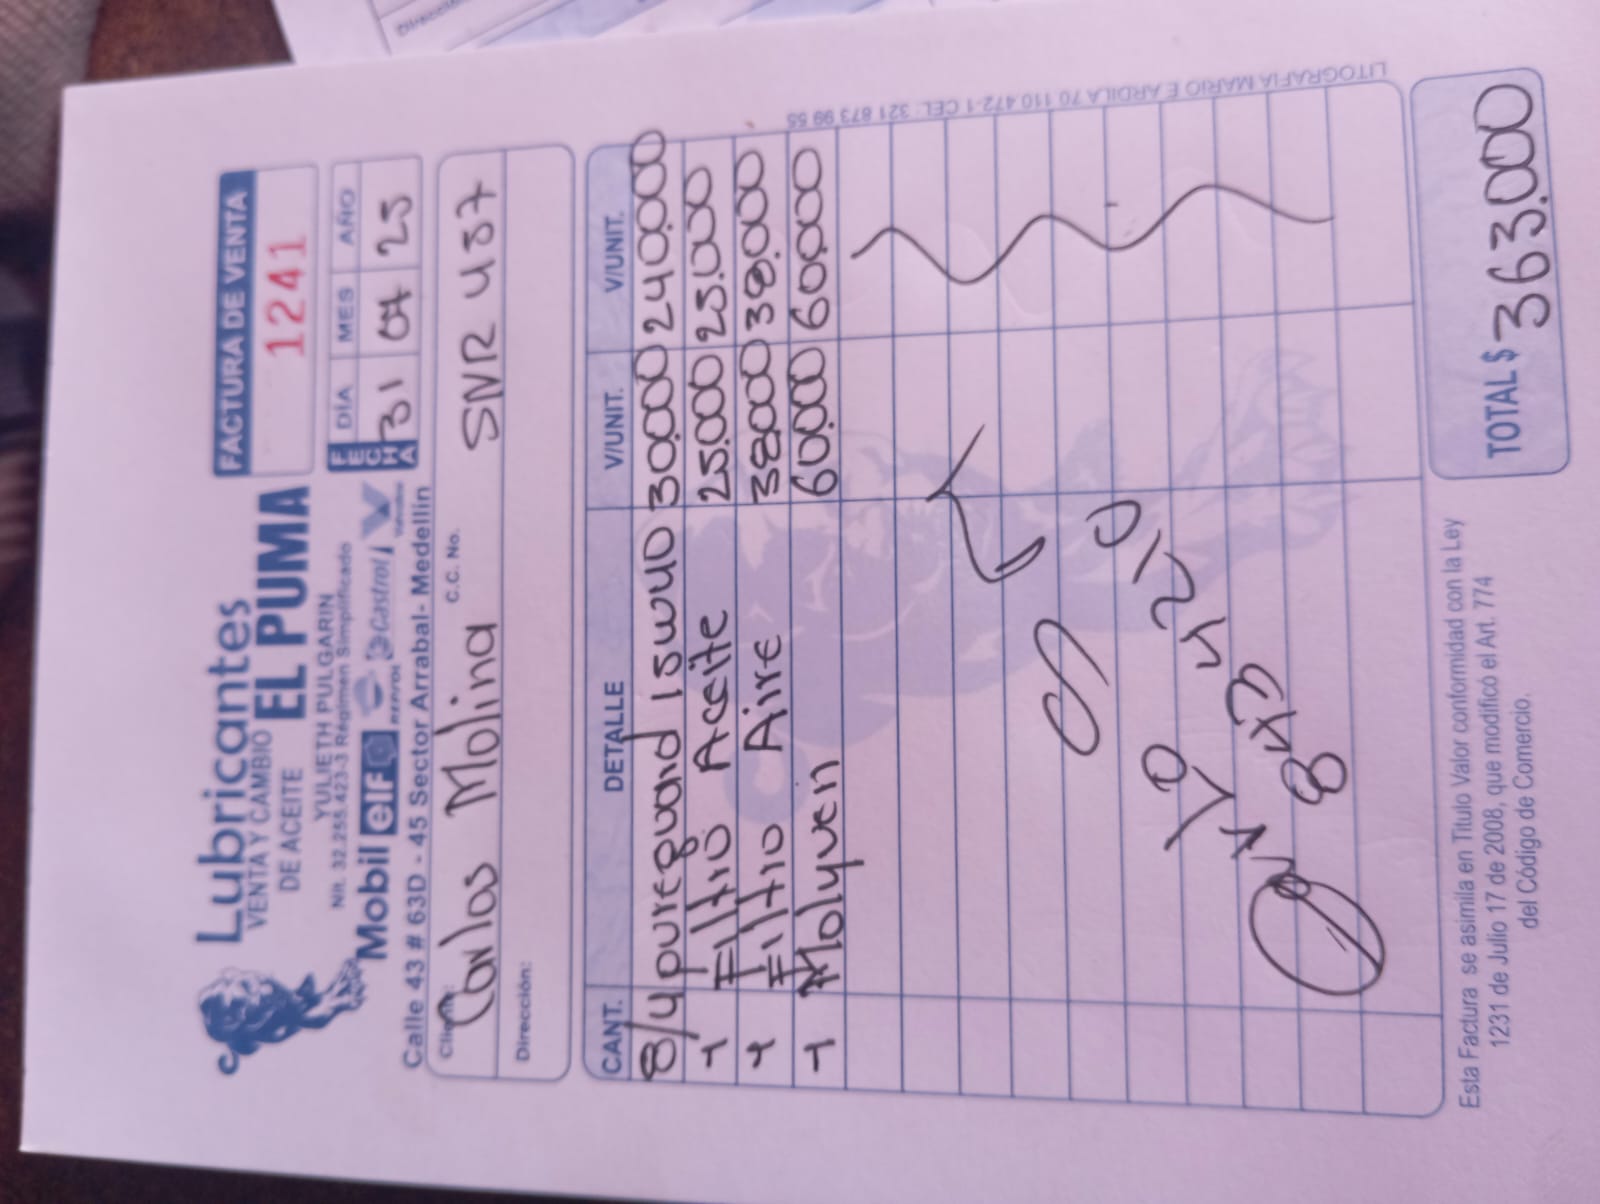 Lubricantes
EL PUMA
VENTA Y CAMBIO
DE ACEITE
YULIETH PULGARIN
Nit. 32.255.423-3 Régimen Simplificado
Mobil elf REPSOL Castrol Valvoline
Calle 43 # 63D - 45 Sector Arrabal- Medellín
FACTURA DE VENTA
1241
FECHA
DÍA MES AÑO
31 07 25
Cliente: Carlos Molina C.C. No. SNR 457
Dirección:
CANT. DETALLE V/UNIT. V/UNIT.
8/4 pureguard 15W40 30.000 240.000
1 Filtro Aceite 25.000 25.000
1 Filtro Aire 38.000 38.000
1 Molyven 60.000 60.000
TOTAL $ 363.000
Esta Factura se asimila en Titulo Valor conformidad con la Ley
1231 de Julio 17 de 2008, que modificó el Art. 774
del Código de Comercio.
LITOGRAFIA MARIO E ARDILA 70 110 472-1 CEL: 321 873 99 55